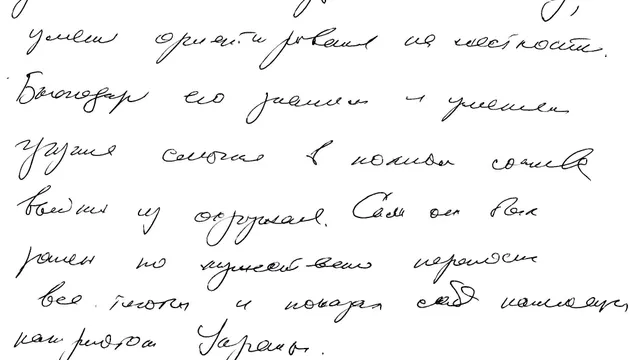 умен ориентирован на местности.
Благодар его знаниям и умениям
группа смогла в полном составе
выйти из окружен. Сам он был
ранен но мужественно перенос
все тяготы и показал себя настоящ
патриотом Украины.